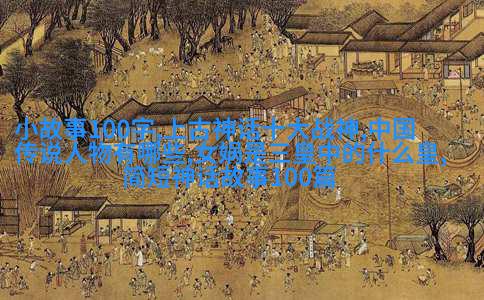 小故事100字,上古神话十大战神,中国
传说人物有哪些,女娲是三皇中的什么皇,
简短神话故事100篇